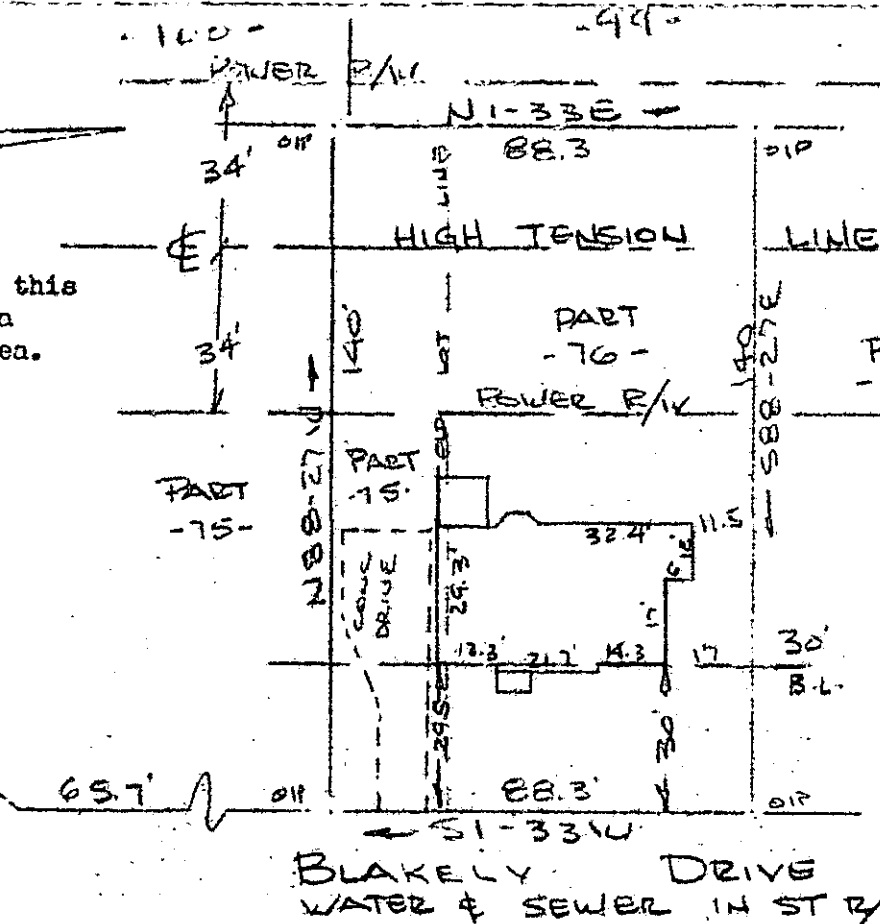 -99-
POWER R/W
N 1-33 E
OIP
88.3
OIP
34'
HIGH TENSION LINE
this
a
ea.
34'
140'
LOT LINE
PART
-76-
140
S88-27E
POWER R/W
N88-27W
PART
-75-
PART
-75-
OLD
CONC
DRIVE
32.4'
11.5
29.3'
6
12.3'
21.7'
14.3
17
30'
B.L.
29.5
30'
65.7'
OIP
88.3'
OIP
S1-33W
BLAKELY DRIVE
WATER & SEWER IN ST R/